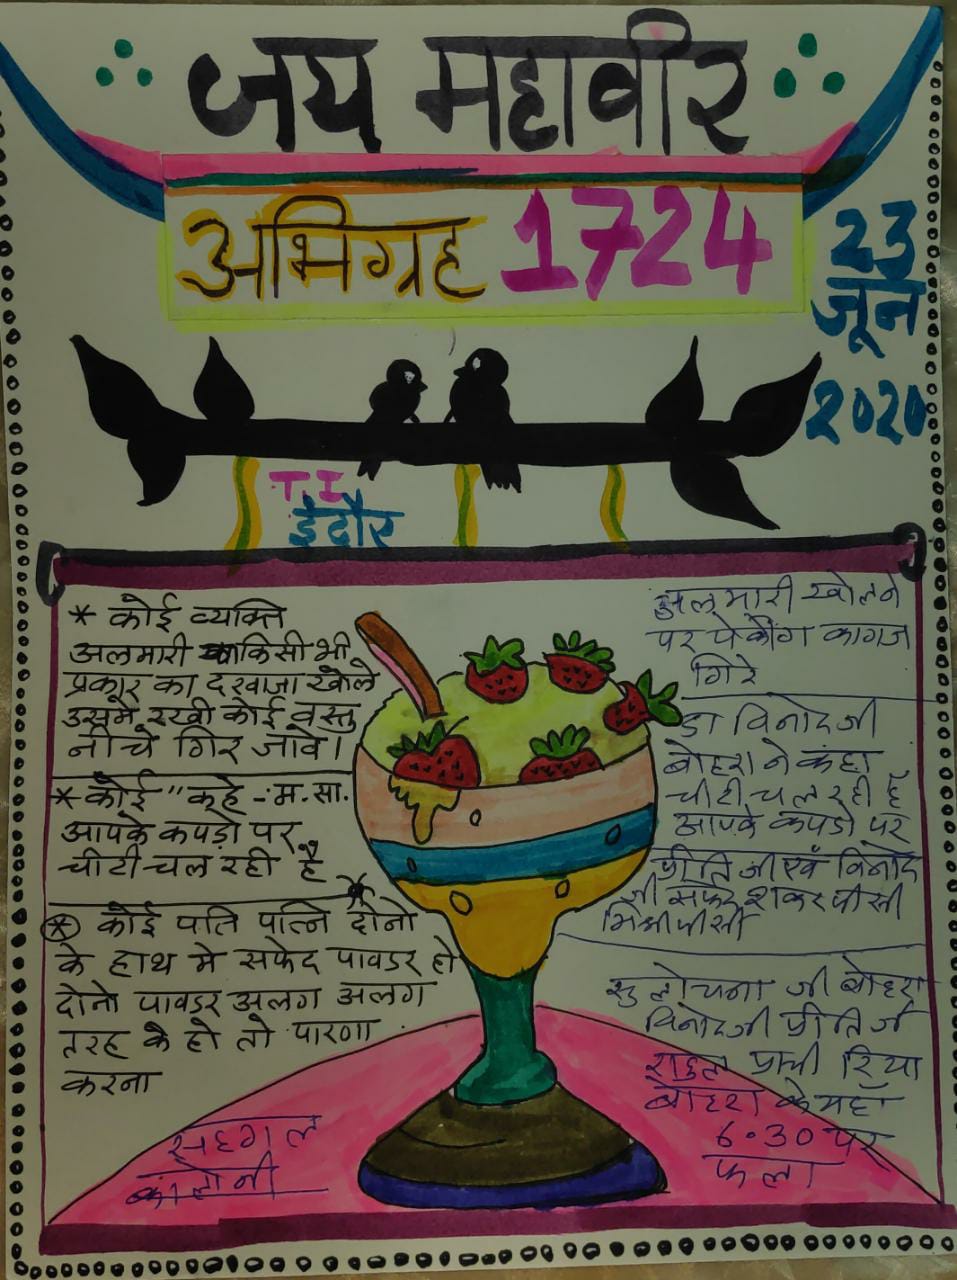 जय महावीर
अभिग्रह 1724
23
जून
2020
T.I
इंदौर
* कोई व्यक्ति
अलमारी या किसी भी
प्रकार का दरवाजा खोले
उसमे रखी कोई वस्तु
नीचे गिर जावे।
* कोई "कहे - म.सा.
आपके कपड़ो पर
चीटी चल रही है
* कोई पति पत्नि दोनो
के हाथ मे सफेद पावडर हो
दोनो पावडर अलग अलग
तरह के हो तो पारणा
करना
सहगल
कालोनी
अलमारी खोलने
पर पेकींग कागज
गिरे
डा विनोद जी
बोहरा ने कहा
चीटी चल रही है
आपके कपडो पर
प्रीति जी एवं विनोद
जी सफेद शकर पीसी
मिश्री पीसी
सुलोचना जी बोहरा
विनोद जी प्रीति जी
राहुल प्राची रिया
बोहरा के यहाँ
6.30 पर
फला